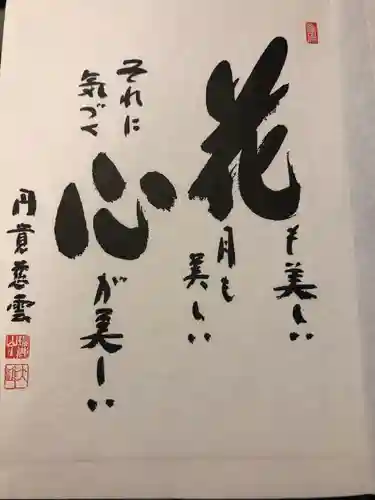 花も美しい
月も美しい
それに
気づく
心が美しい
円貴慈雲